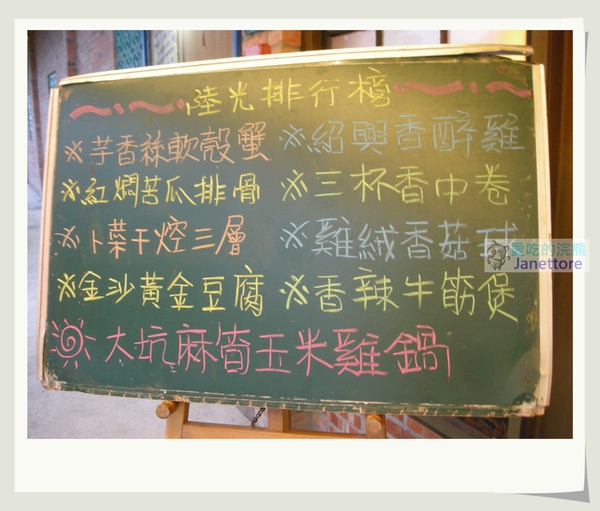 陸光排行榜
※芋香絲軟殼蟹 ※紹興香醉雞
※紅燜苦瓜排骨 ※三杯香中卷
※卜菜干焢三層 ※雞絨香菇
※金沙黃金豆腐 ※香辣牛筋煲
大坑麻筍玉米雞鍋
愛吃的浣熊
Janettore